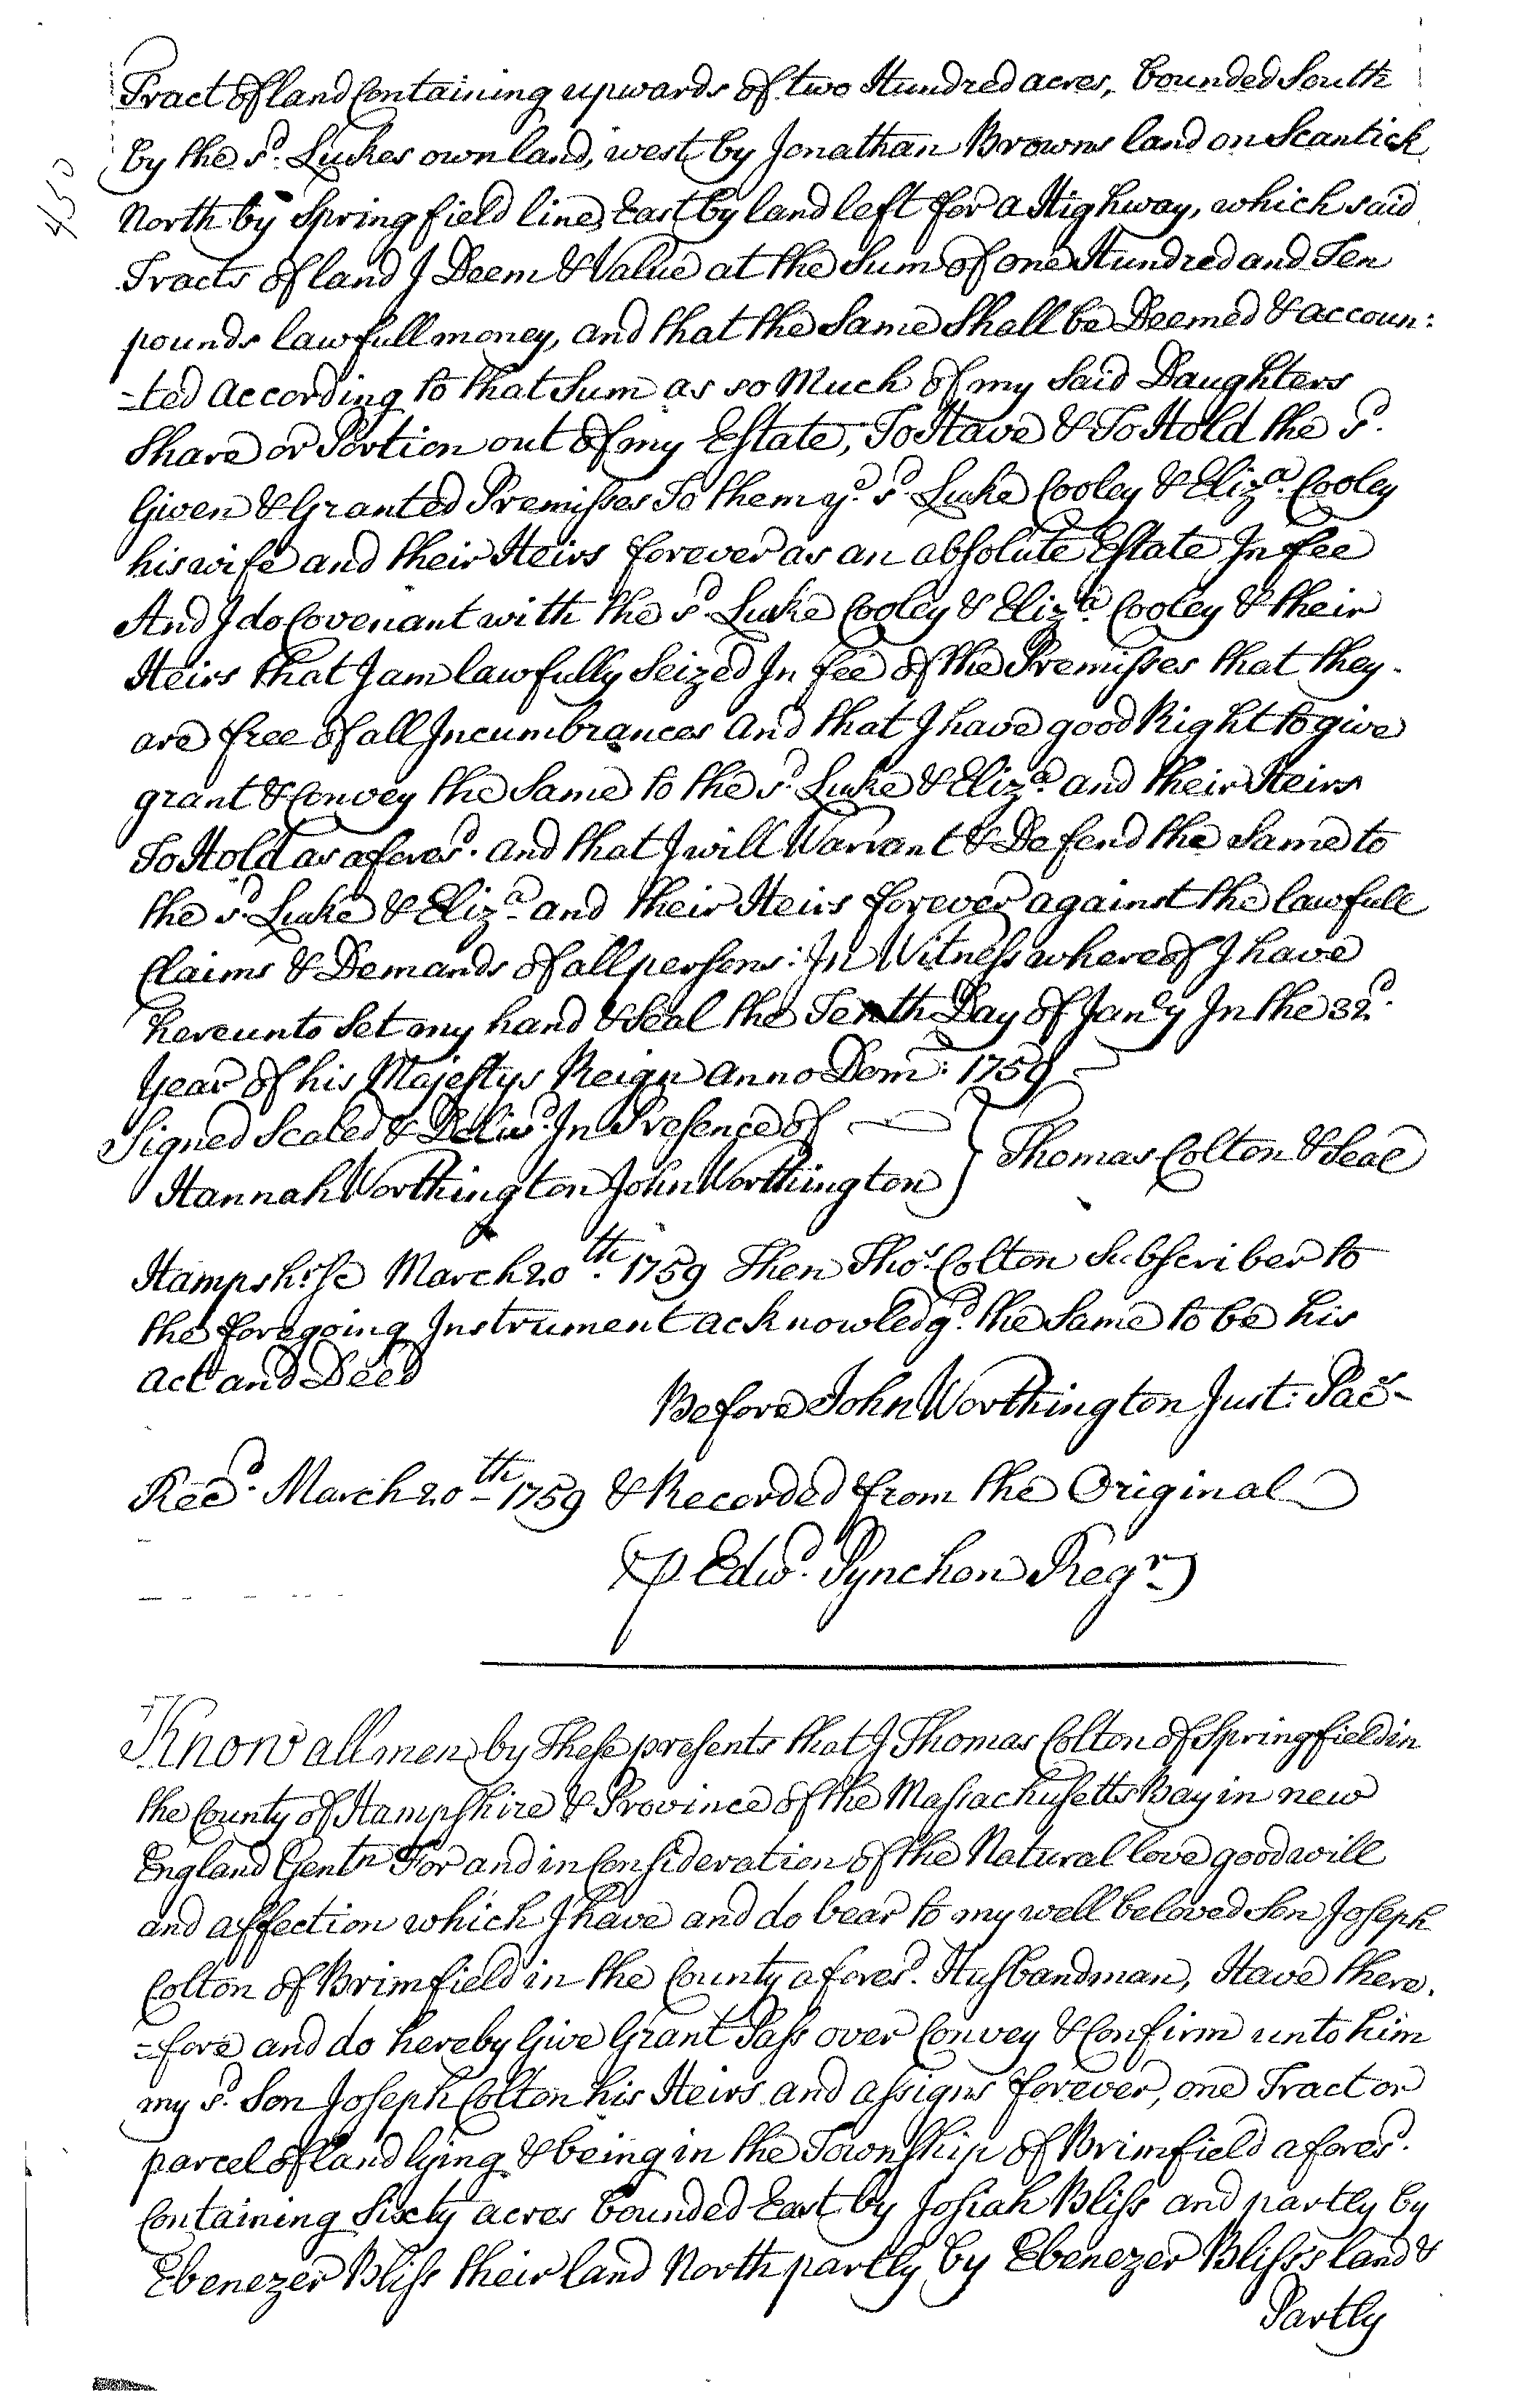 450
Tract of land Containing upwards of two Hundred acres, bounded South
by the sd. Lukes own land, west by Jonathan Browns land on Scantick
North by Springfield line, East by land left for a Highway, which said
Tracts of land I Deem & Value at the Sum of one Hundred and Ten
pounds lawfull money, and that the Same Shall be Deemed & accoun:
=ted according to that Sum as so Much of my Said Daughters
Share or Portion out of my Estate, To Have & To Hold the sd.
Given & Granted Premisses To them ye. sd. Luke Cooley & Eliza. Cooley
his wife and their Heirs forever as an absolute Estate In fee
And I do Covenant with the sd. Luke Cooley & Eliza. Cooley & their
Heirs that I am lawfully Seized In fee of the Premisses that they
are free of all Incumbrances and that I have good Right to give
grant & Convey the Same to the sd. Luke & Eliza. and their Heirs
To Hold as aforesd. and that I will Warrant & Defend the Same to
the sd. Luke & Eliza. and their Heirs forever against the lawfull
Claims & Demands of all persons: In Witness whereof I have
hereunto Set my hand & Seal the Tenth Day of Jany In the 32d.
year of his Majestys Reign Anno Dom: 1759
Signed Sealed & Delivd. In Presence of } Thomas Colton & Seal
Hannah Worthington John Worthington
Hampshr. Sc March 20th. 1759 Then Thos. Colton Subscriber to
the foregoing Instrument acknowledgd. the Same to be his
act and Deed
Before John Worthington Just: Pacs
Recd. March 20th 1759 & Recorded from the Original
P Edwd. Pynchon Regr.
Know all men by These presents that I Thomas Colton of Springfield in
the County of Hampshire & Province of the Massachusetts Bay in new
England Gentn For and in Consideration of the Natural love good will
and affection which I have and do bear to my well beloved Son Joseph
Colton of Brimfield in the County aforesd. Husbandman, Have there.
=fore and do hereby Give Grant Pass over Convey & Confirm unto him
my sd. Son Joseph Colton his Heirs and assigns forever, one Tract or
parcel of land lying & being in the Township of Brimfield aforesd.
Containing Sixty acres bounded East by Josiah Bliss and partly by
Ebenezer Bliss their land North partly by Ebenezer Bliss's land &
Partly